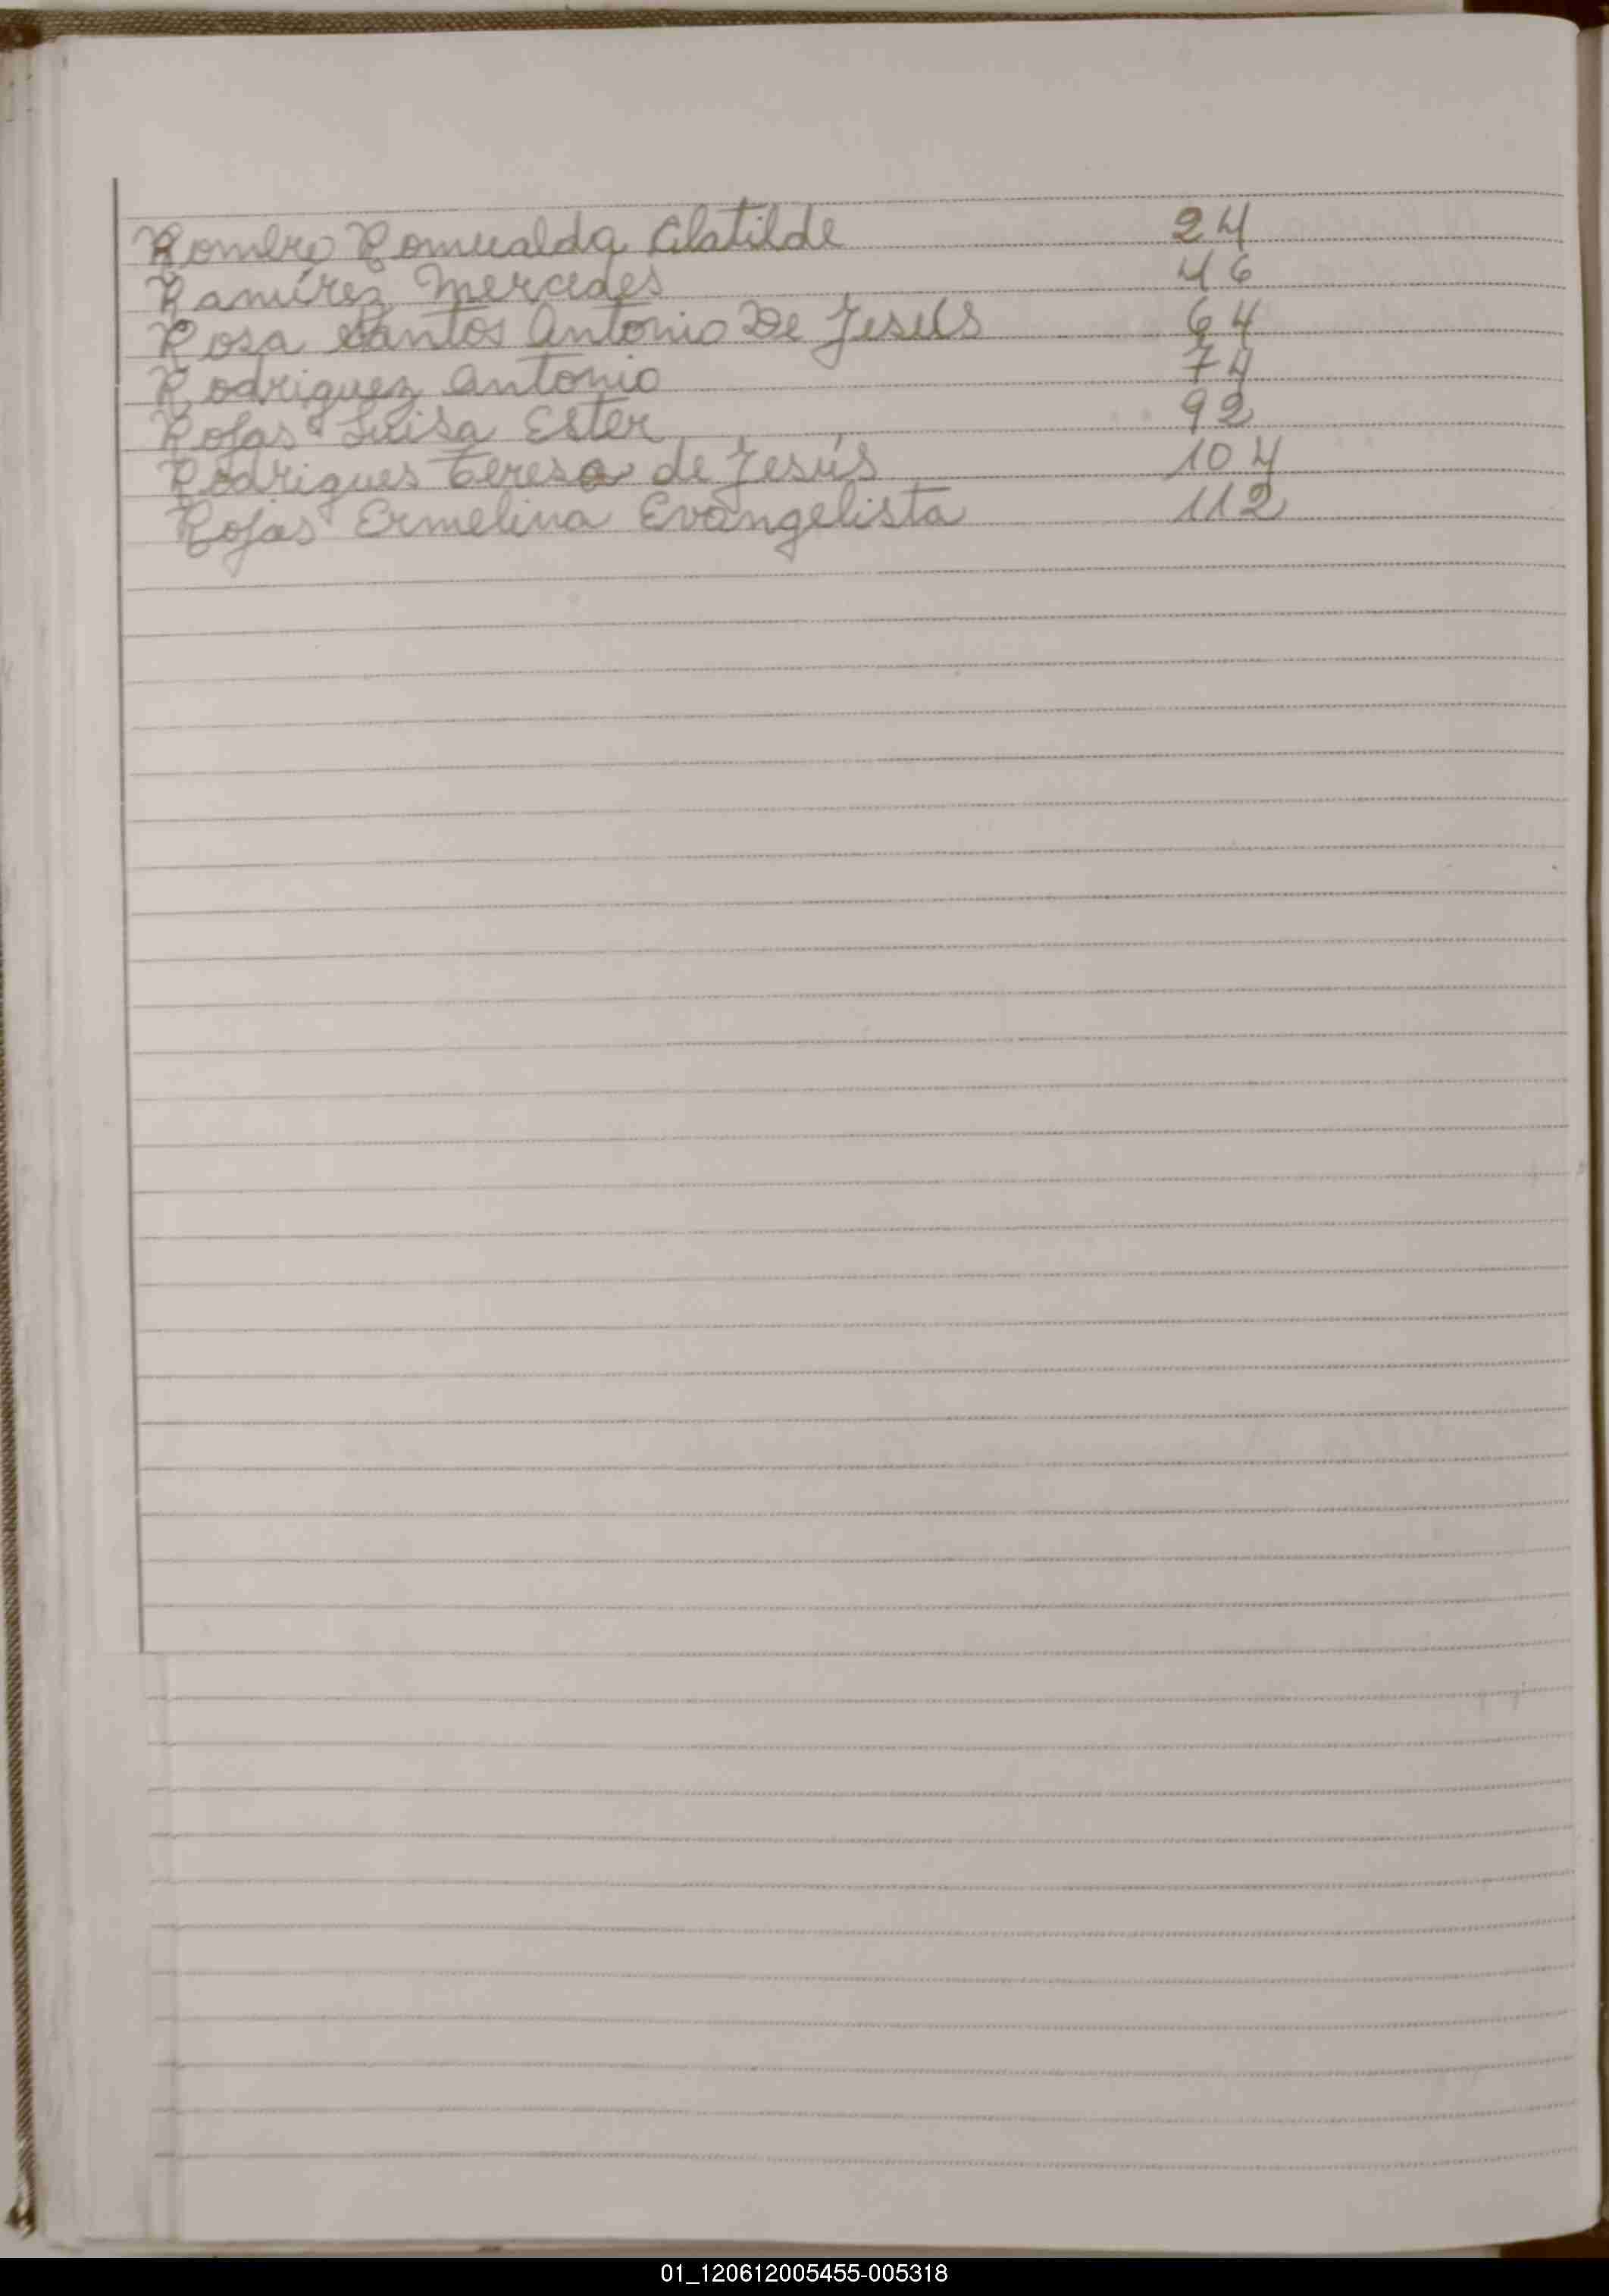 Romualda Clatilde 24
Ramírez Mercedes 46
Rosa Santos Antonio De Jesús 64
Rodriguez Antonio 74
Rojas Luisa Ester 92
Rodrigues Teresa de Jesús 104
Rojas Ermelina Evangelista 112
01_120612005455-005318